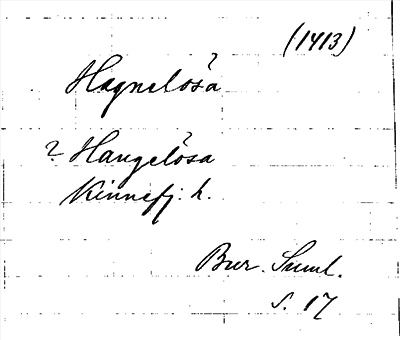 (1413)
Hagnelösa
? Hangelösa
Kinnefj. h.
Bur. Suml.
s. 17